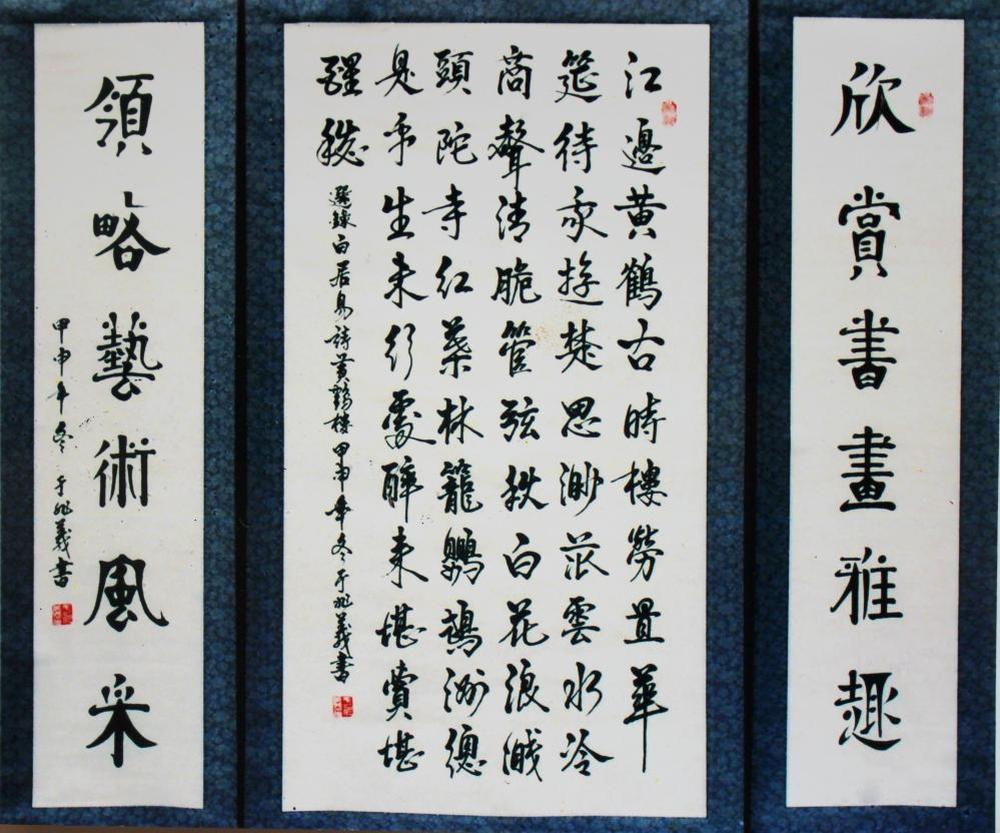 欣賞書畫雅趣
江邊黄鶴古時樓勞置華
筵待我遊楚思渺茫雲水冷
商聲清脆管弦秋白花浪濺
頭陀寺紅葉林籠鸚鵡洲總
是平生未行處醉來堪賞堪
醒愁
選錄白居易詩黄鶴樓甲申年冬于兆義書
領略藝術風采
甲申年冬于兆義書